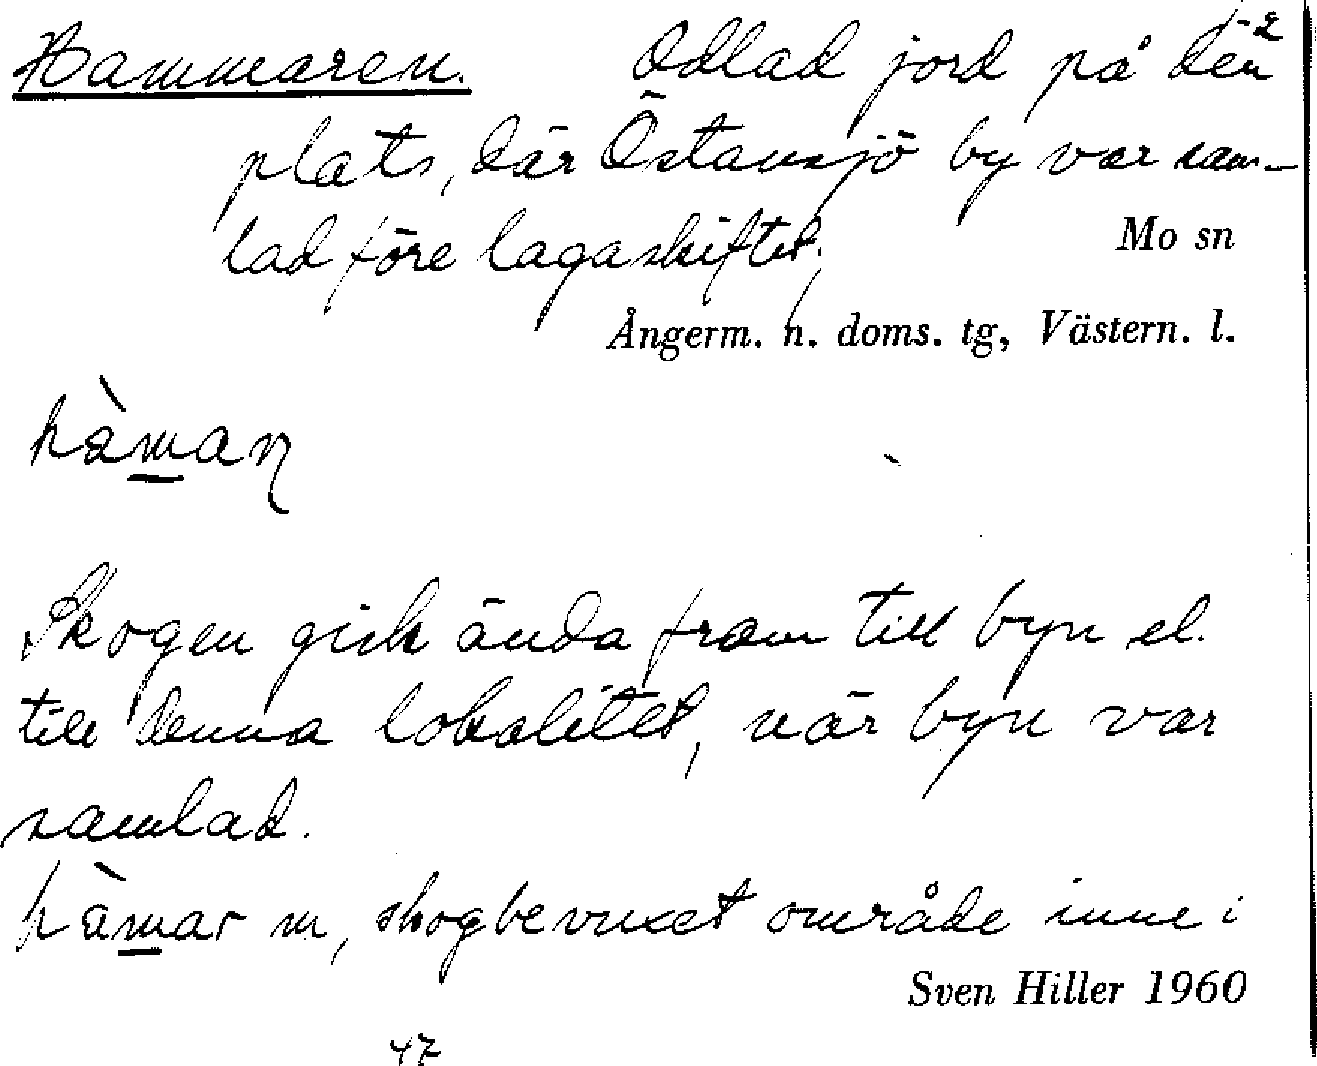 1-2
Hammaren. Odlad jord på den
plats, där Östansjö by var sam-
lad före lagaskiftet.
Mo sn
Ångerm. n. doms. tg, Västern. l.
hàman
Skogen gick ända fram till byn el.
till denna lokalitet, när byn var
samlad.
hàmar m, skogbevuxet område inne i
Sven Hiller 1960
47